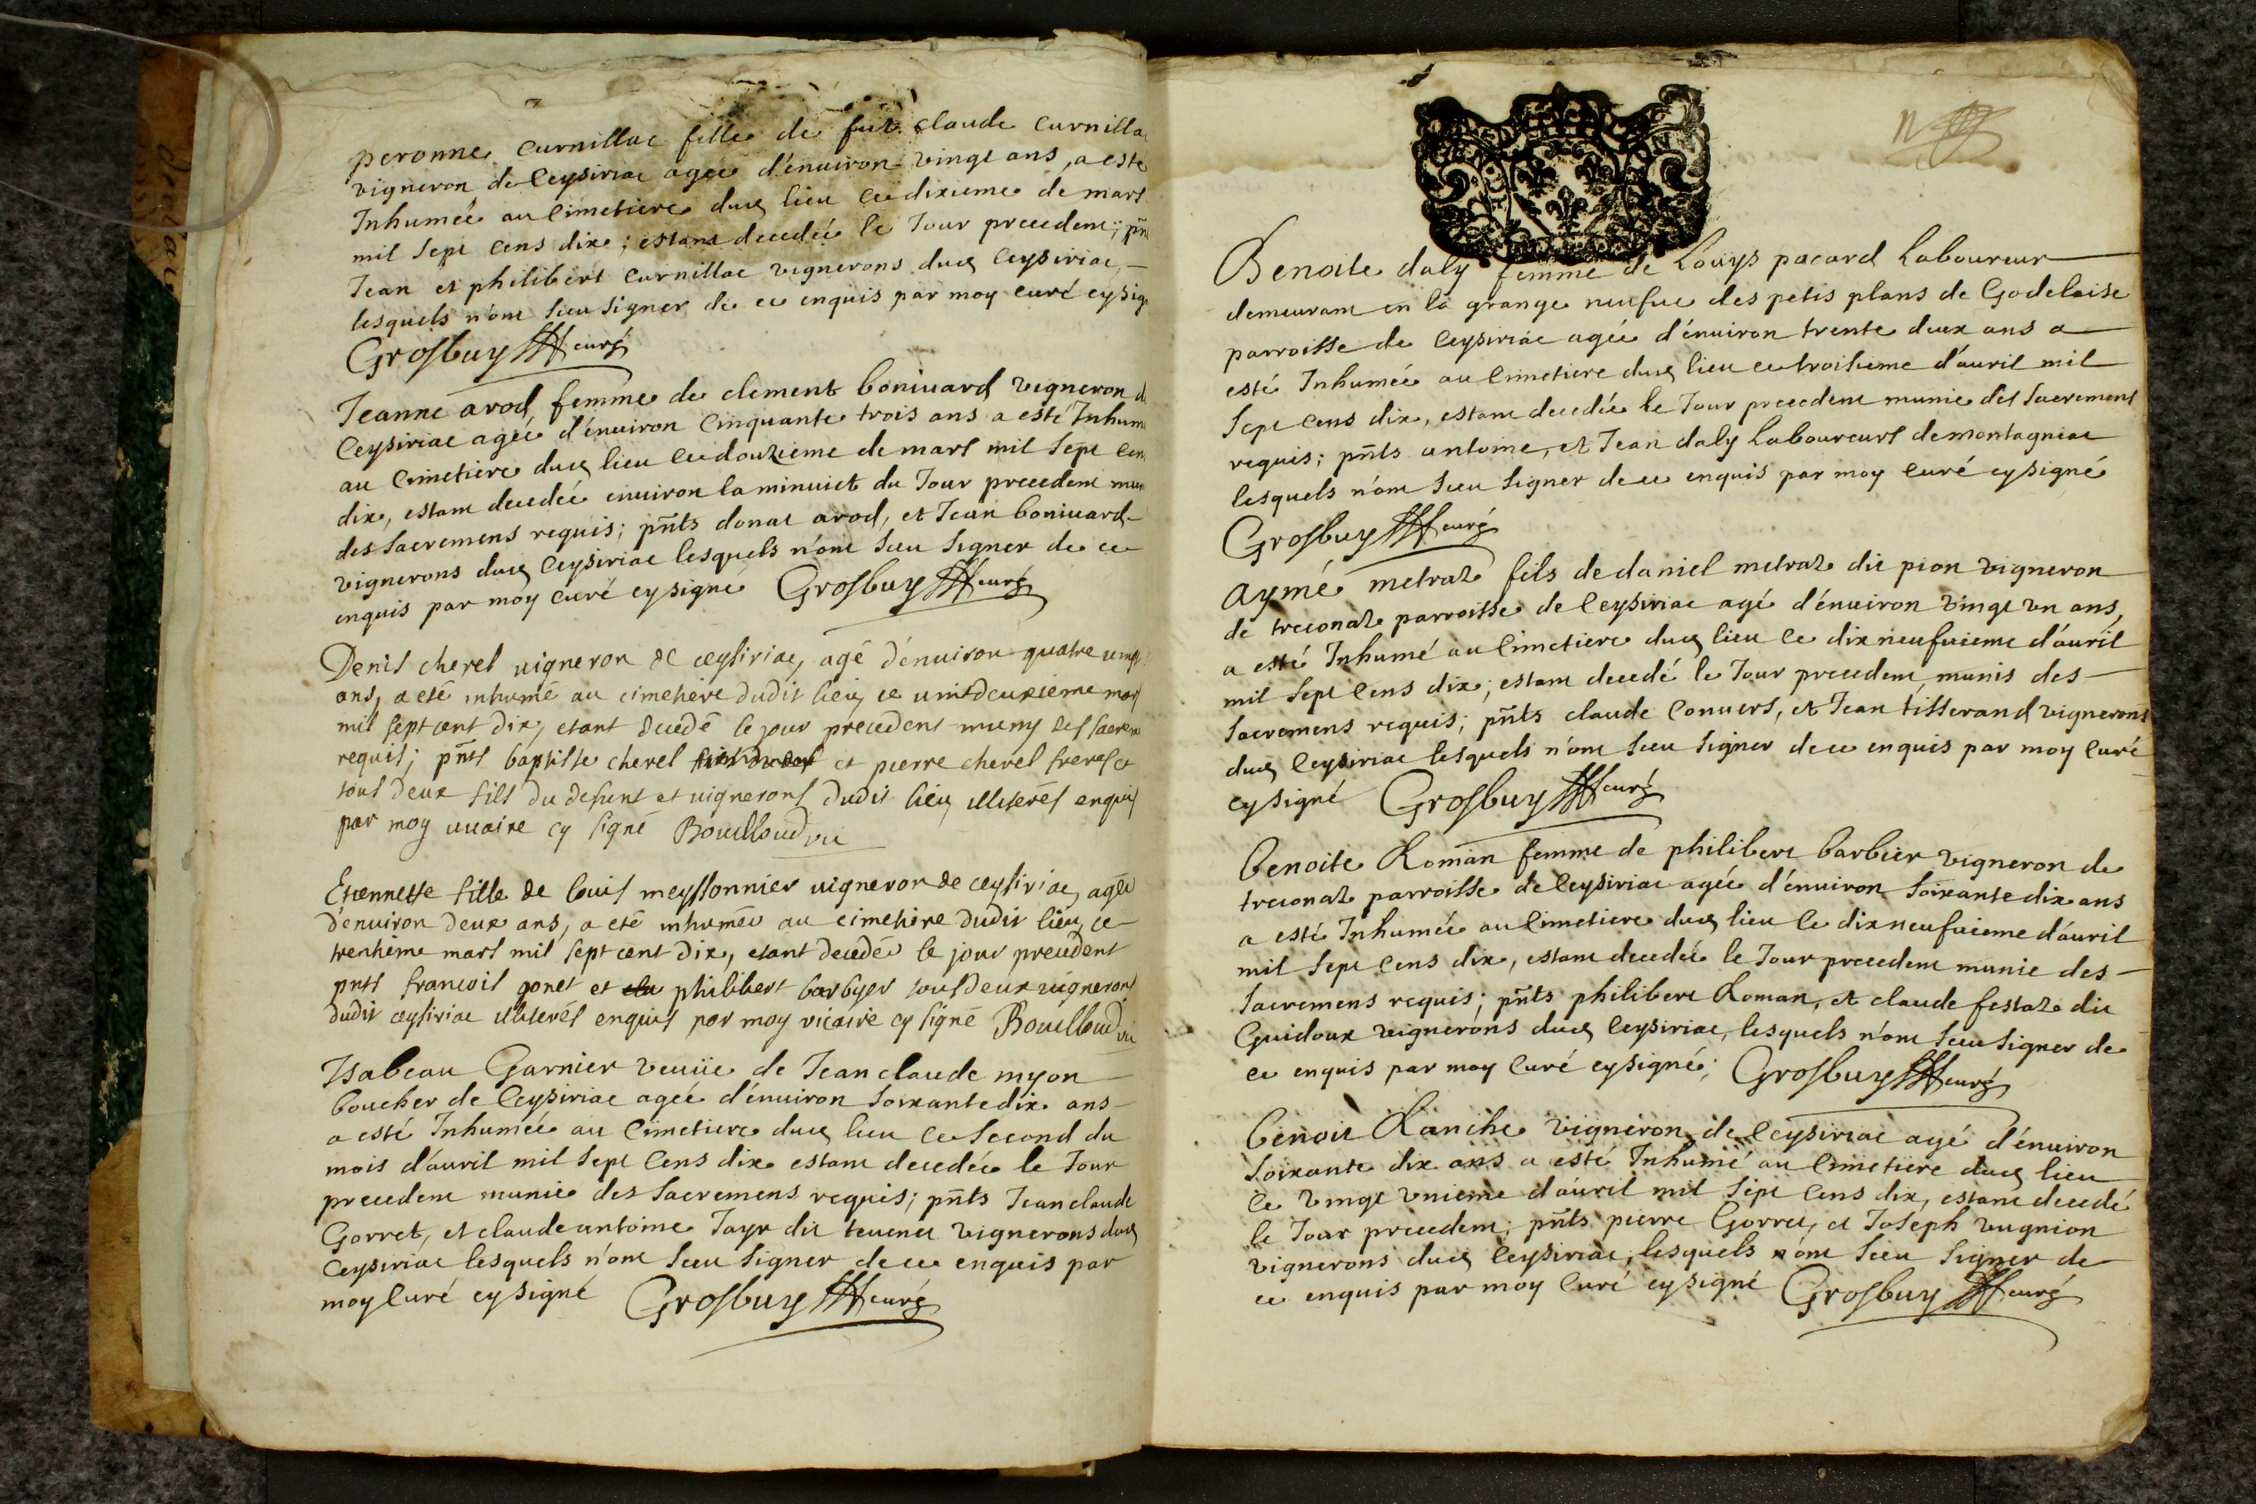 peronne Curnillac fille de fut Claude Curnilla
vigneron de Ceysiriac agée d'énuiron vingt ans, a esté
Inhumée au Cimetiere dud lieu ce dixieme de mars
mil sept cens dix; estant decedée le Jour precedent; pñ
Jean et philibert Curnillac vignerons dud Ceysiriac,
lesquels n'ont sceu signer de ce enquis par moy curé cysig
Grosbuy curé
Jeanne arod, femme de clement bonivard vigneron d
Ceysiriac agée d'énuiron Cinquante trois ans a esté Inhum
au Cimetiere dud lieu ce douzieme de mars mil sept cen
dix, estant decedée enuiron la minuict du Jour precedent mun
des sacremens requis; pñts donat arod, et Jean bonivard
vignerons dud Ceysiriac lesquels n'ont sceu signer de ce
enquis par moy curé cysigné Grosbuy curé
Denis cherel uigneron de ceysiriac, agé d'énuiron quatre uing
ans, a eté inhumé au cimetiere dudit lieu, ce uint deuxieme mars
mil sept cent dix, etant decedé le jour precedent muny des sacrem
requis; pñts baptiste cherel et pierre cherel freres
tous deux fils du defunt et uignerons dudit lieu illiterés enquis
par moy uicaire cy signé Bouilloud vic
Etiennette fille de louis meyssonnier uigneron de ceysiriac, agée
d'enuiron deux ans, a eté inhumée au cimetiere dudit lieu, ce
trentième mars mil sept cent dix, etant decedée le jour precedent
pnts francois gonet et philibert barbyer tous deux uignerons
dudit ceysiriac illiterés enquis par moy vicaire cy signé Bouilloud vic
Isabeau Garnier veuüe de Jean claude myon
boucher de Ceysiriac agée d'énuiron soixante dix ans
a esté Inhumée au Cimetiere dud lieu ce second du
mois d'áuril mil sept Cens dix estant decedée le Jour
precedent munie des sacremens requis; pñts Jean claude
Gorret, et claude antoine Jayr dit tevenet vignerons dud
Ceysiriac lesquels n'ont sceu signer de ce enquis par
moy Curé cysigné Grosbuy curé
Benoite daly femme de Loüys pacard Laboureur
demeurant en la grange neufue des petis plans de Godelaise
parroisse de Ceysiriac agée d'énuiron trente deux ans a
esté Inhumée au Cimetiere dud lieu ce troisieme d'áuril mil
sept cens dix, estant decedée le Jour precedent munie des sacremens
requis; pñts antoine, et Jean daly Laboureurs de montagniac
lesquels n'ont sceu signer de ce enquis par moy Curé cysigné
Grosbuy curé
aymé metraz fils de daniel metraz dit pion vigneron
de treconaz parroisse de Ceysiriac agé d'énuiron vingt vn ans,
a esté Inhumé au Cimetiere dud lieu ce dix neufuieme d'áuril
mil sept Cens dix; estant decedé le Jour precedent, munis des
sacremens requis; pñts claude Convers, et Jean tisserand vignerons
dud Ceysiriac lesquels n'ont sceu signer de ce enquis par moy Curé
cysigné Grosbuy curé
benoite Roman femme de philibert barbier vigneron de
treconaz parroisse de Ceysiriac agée d'énuiron soixante dix ans
a esté Inhumée au Cimetiere dud lieu ce dix neufuieme d'áuril
mil sept Cens dix, estant decedée le Jour precedent munie des
sacremens requis; pñts philibert Roman, et claude festaz dit
Guidoux vignerons dud Ceysiriac, lesquels n'ont sceu signer de
ce enquis par moy Curé cysigné; Grosbuy curé
benoit Ranche vigneron de Ceysiriac agé d'énuiron
soixante dix ans a esté Inhumé au Cimetiere dud lieu
ce vingt vnieme d'áuril mil sept Cens dix, estant decedé
le Jour precedent; pñts pierre Gorret, et Joseph vugnion
vignerons dud Ceysiriac, lesquels n'ont sceu signer de
ce enquis par moy Curé cysigné Grosbuy curé